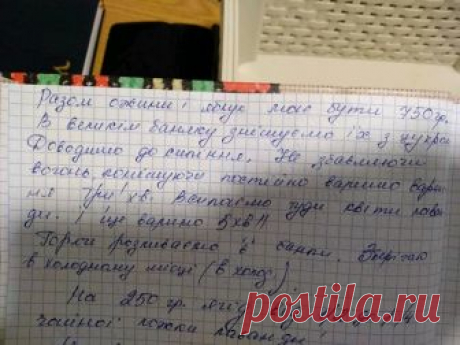 Разом ожини і яблук має бути 750 гр.
В великім баняку змішуємо їх з цукром
Доводимо до кипіння. Не збавляючи
вогонь помішуючи постійно варимо варен
ня три хв. Всипаємо туди квіти лаван
ди. і ще варимо 5 хв!!
Гарячі розливаємо в банки. Зберігаю
в холодному місці (в холод.)
На 250 гр. ягід
чайної ложки лаванди
postila.ru